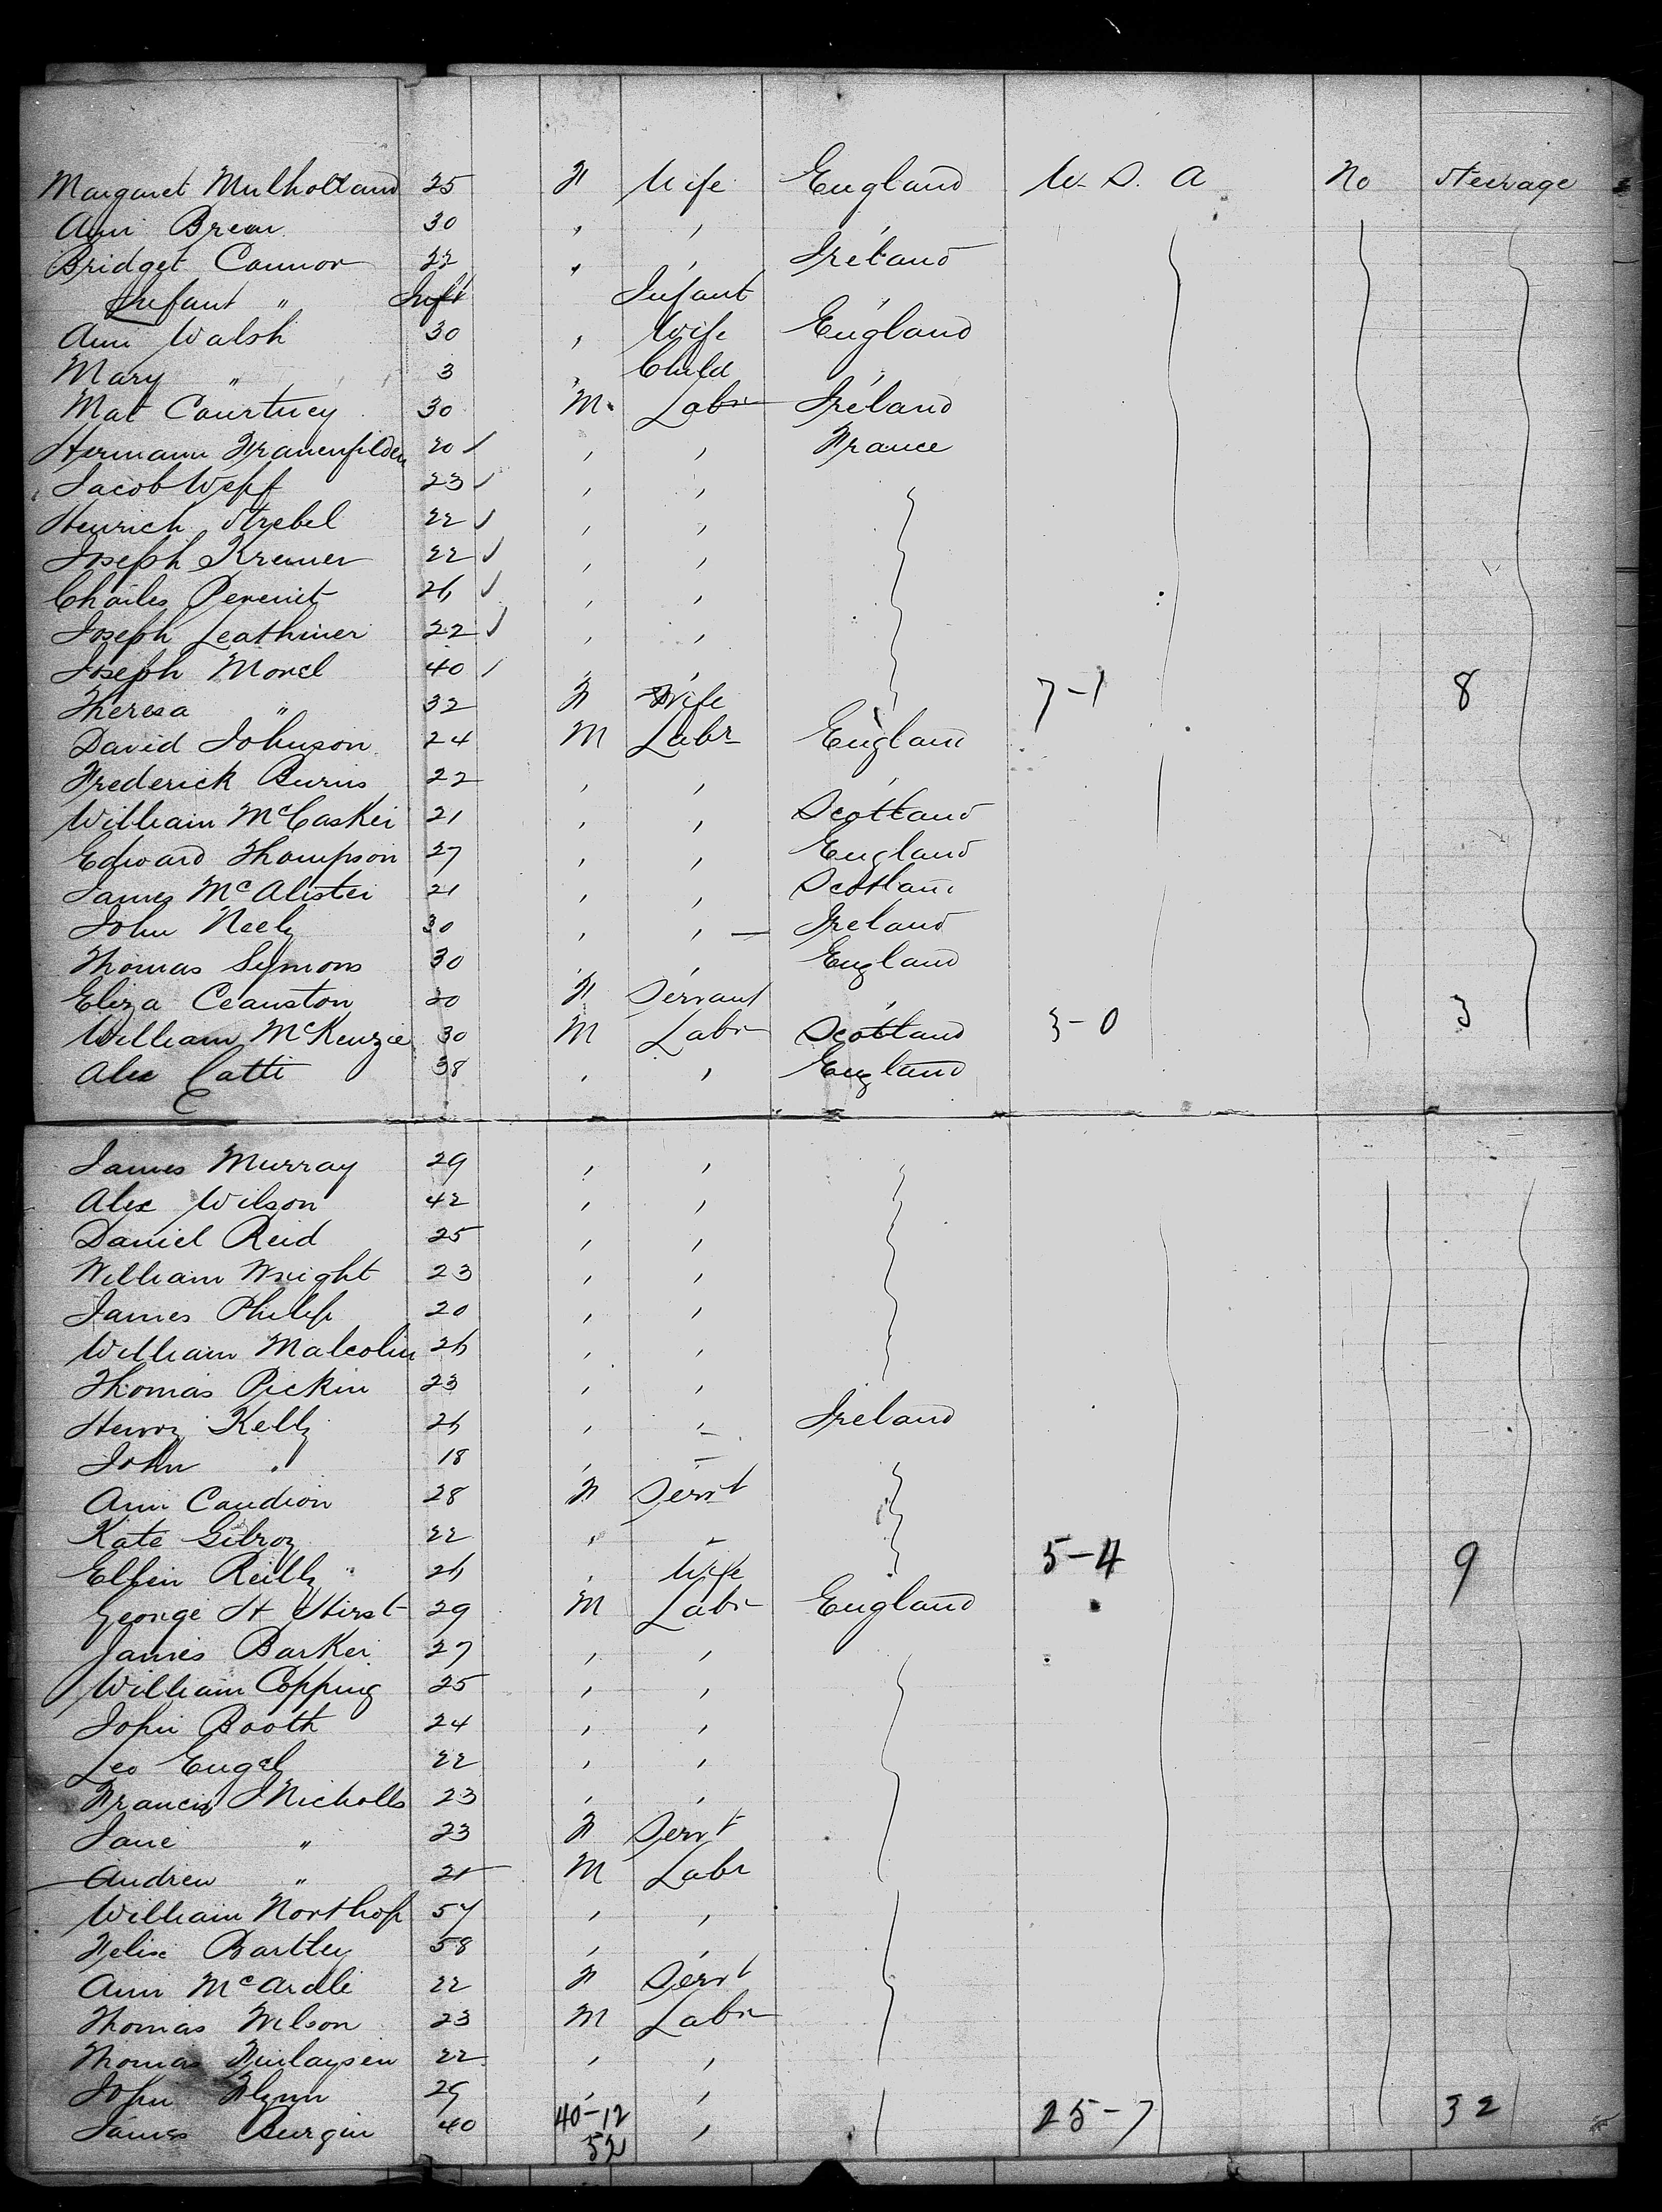 Margaret Mulholland 25 F Wife England U. S. A No Steerage
Ann Brean 30 " " "
Bridget Connor 22 " " Ireland
Infant " Inft Infant "
Ann Walsh 30 " Wife England
Mary " 3 " Child "
Mat Courtney 30 M Labr Ireland
Hermann Frauenfilder 20 ✓ " " France
Jacob Wepf 23 ✓ " "
Heinrich Strebel 22 ✓ " "
Joseph Kremer 22 ✓ " "
Charles 26 ✓ " "
Joseph Leathiner 22 ✓ " "
Joseph Morel 40 ✓ " "
Theresa " 32 F Wife 7-1 8
David Johnson 24 M Labr England
Frederick Burns 22 " " "
William McCasker 21 " " Scotland
Edward Thompson 27 " " England
James McAlister 21 " " Scotland
John Neely 30 " " Ireland
Thomas Symons 30 " " England
Eliza Ceauston 20 F Servant " 3-0 3
William McKenzie 30 M Labr Scotland
Alex Catti 38 " " England
James Murray 29 " "
Alex Wilson 42 " "
Daniel Reid 25 " "
William Wright 23 " "
James Philip 20 " "
William Malcolm 26 " "
Thomas Pickin 23 " "
Henry Kelly 26 " " Ireland
John " 18 " "
Ann Caudion 28 F Servt
Kate Gilroy 22 " "
Ellen Reilly 26 " Wife 5-4 9
George H Hirst 29 M Labr England
James Barker 27 " "
William Copping 25 " "
John Booth 24 " "
Leo Engel 22 " "
Francis J Nicholls 23 " "
Jane " 23 F Servt
Andrew " 21 M Labr
William Northop 57 " "
Felix Bartley 58 " "
Ann McArdle 22 F Servt
Thomas Wilson 23 M Labr
Thomas Finlaysen 22 " "
John Flynn 25 " "
James Burgin 40 40-12 " 25-7 32
52